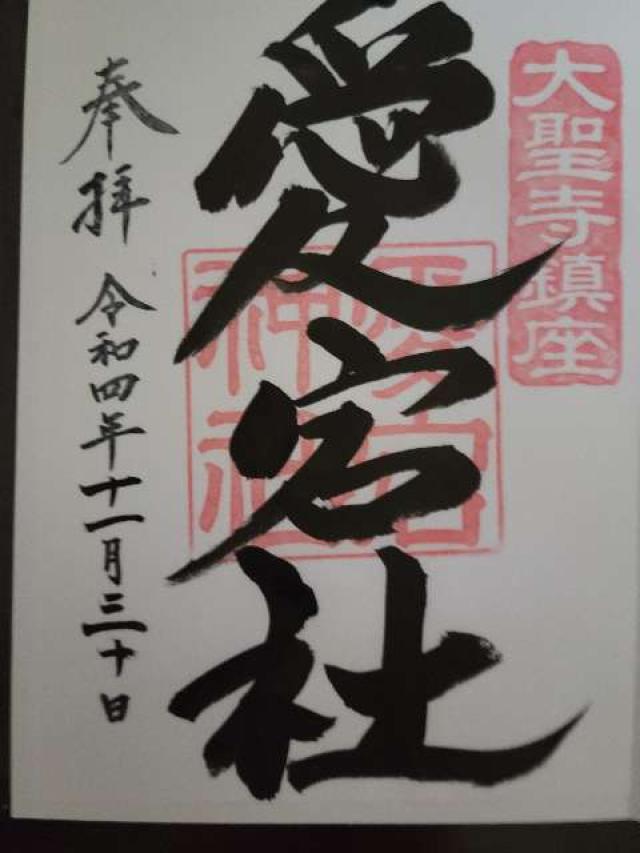 大聖寺鎮座
愛宕社
愛宕
神社
奉拝 令和四年十一月三十日